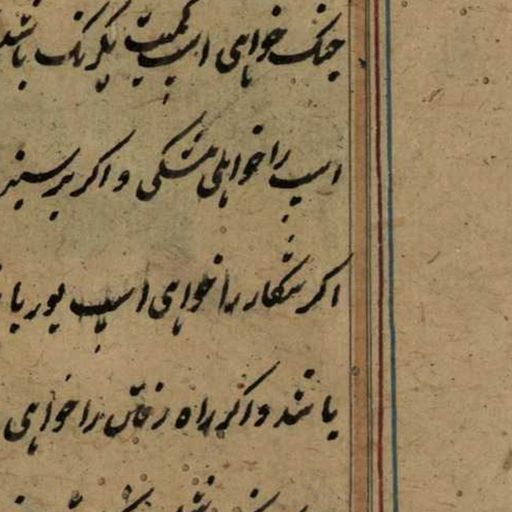 جنک خواهی اسپ کمیت یکرنک باشد
اسپ را خواهی مشکی و اکر بر سینه
اکر شکار را خواهی اسپ بور با
باشد و اکر راه رفتن را خواهی